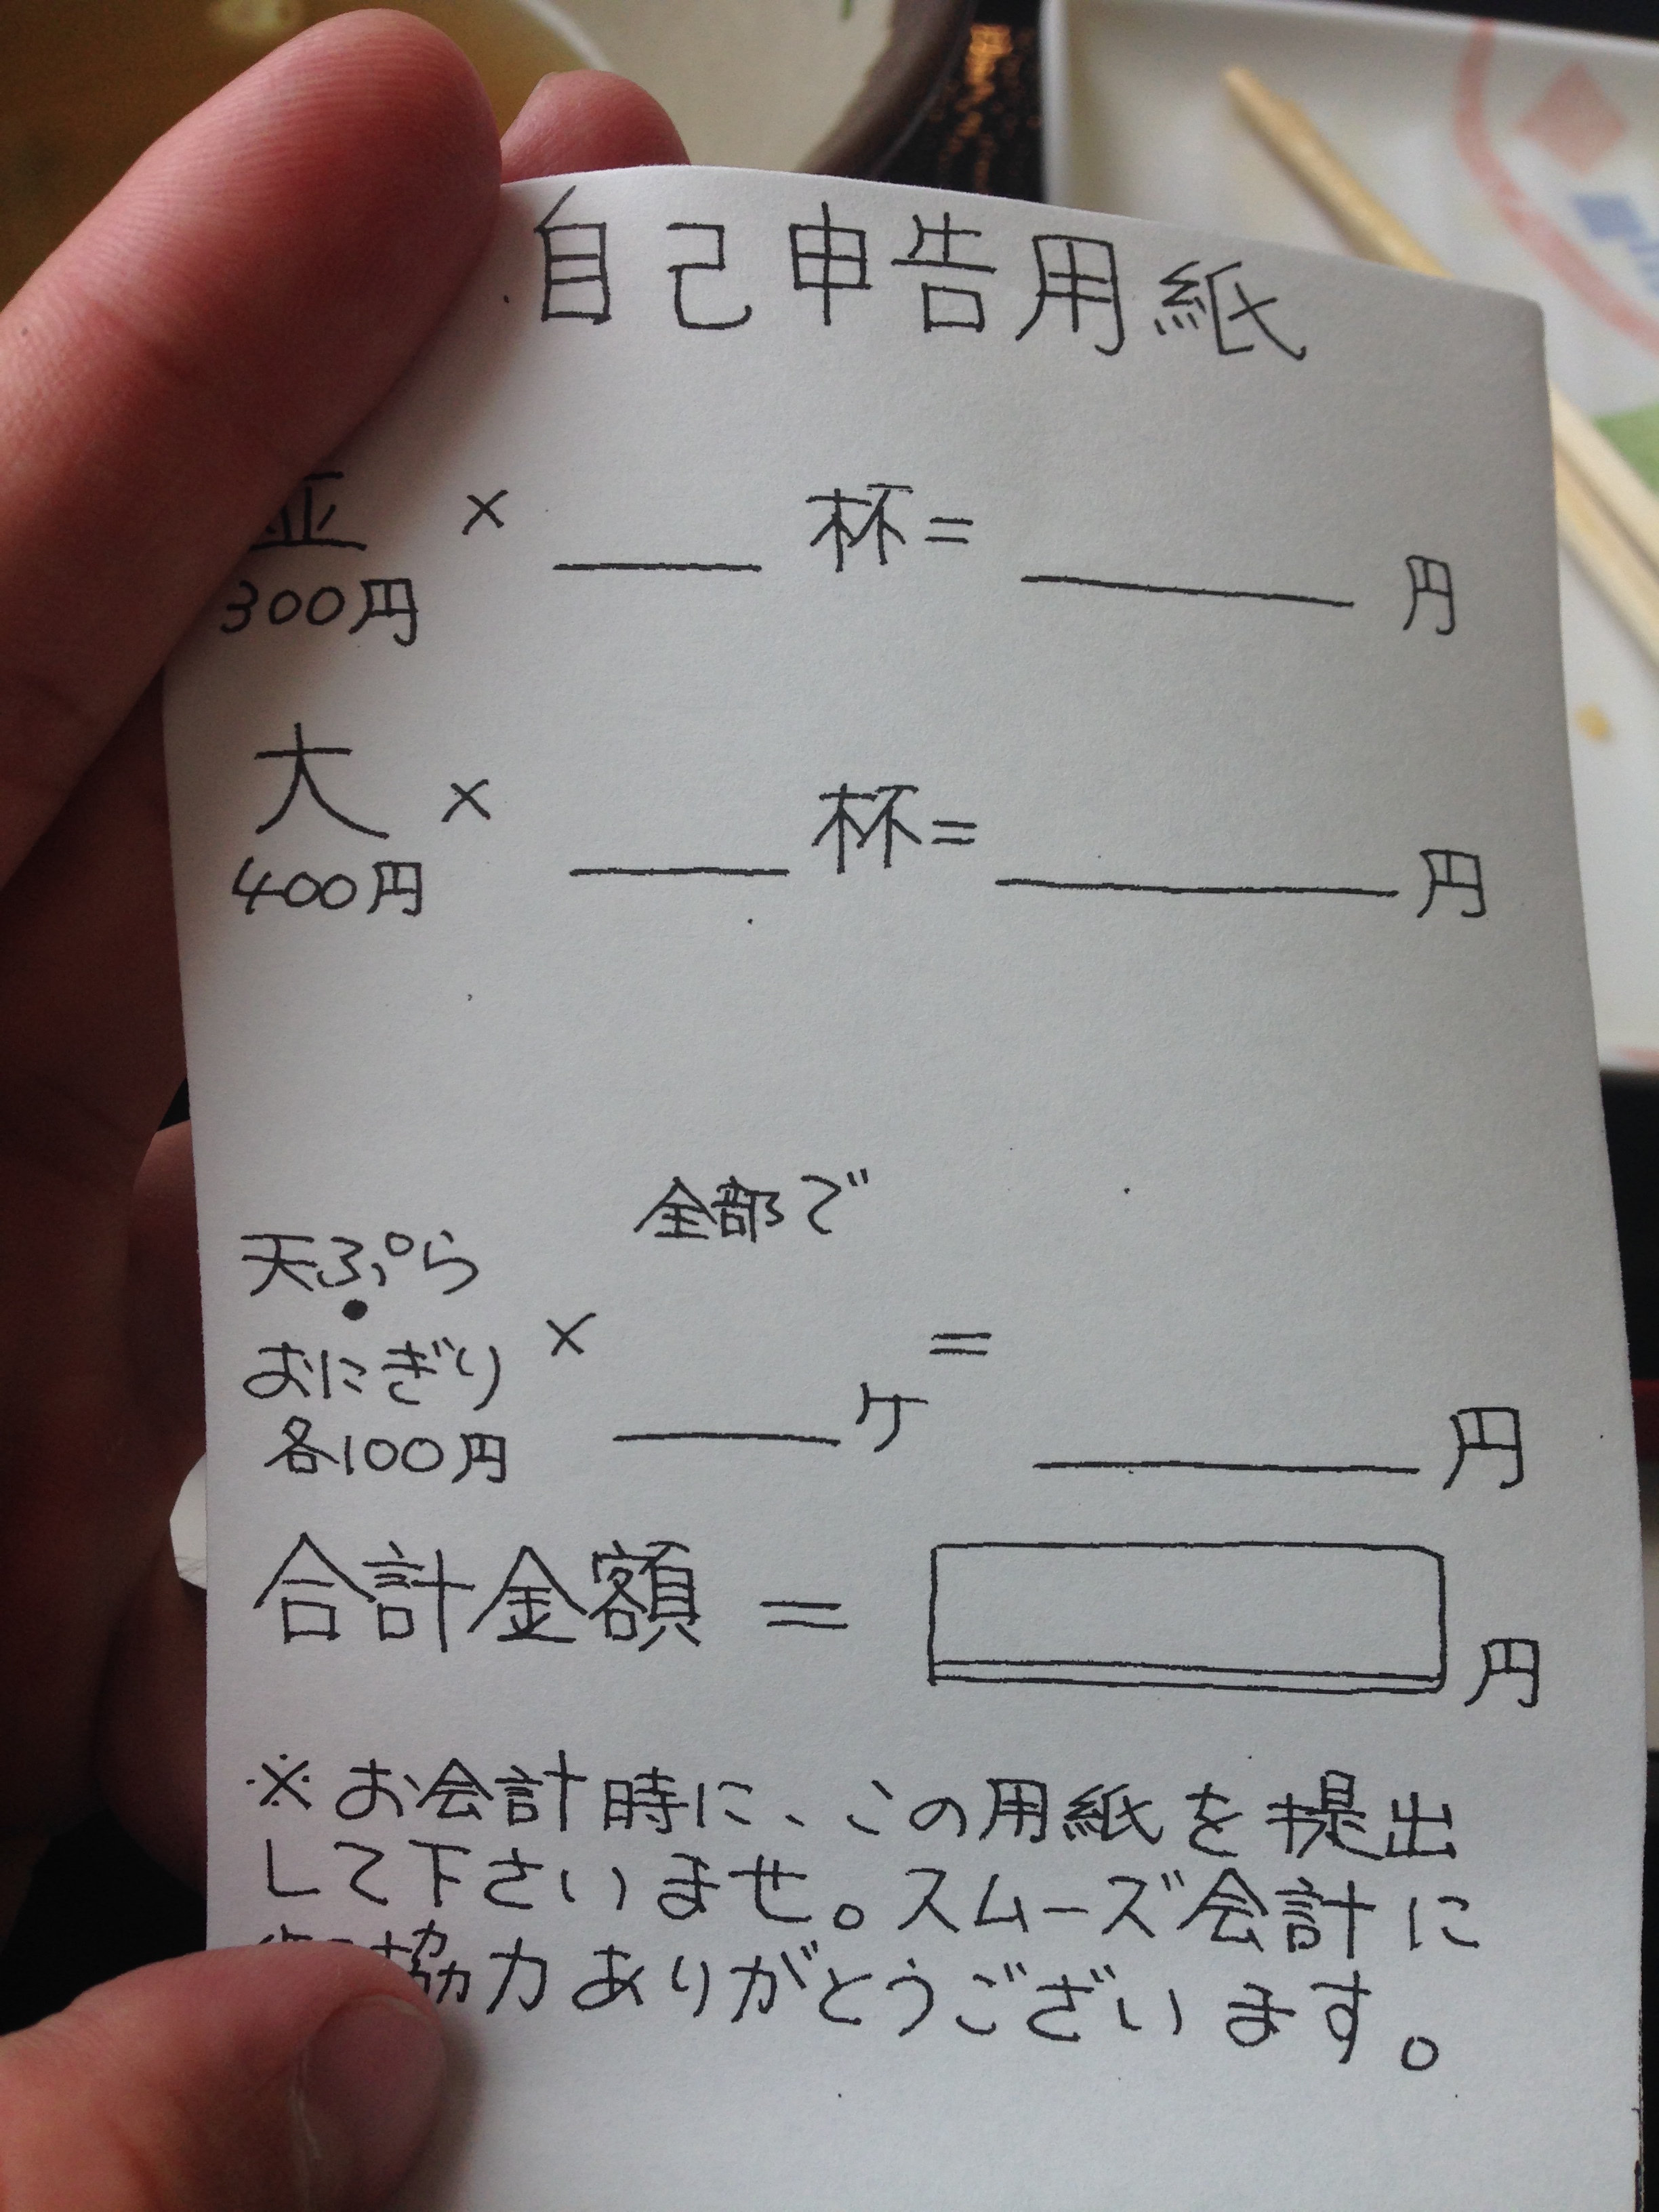 自己申告用紙
並 × ＿＿ 杯= ＿＿＿ 円
300円
大 × ＿＿ 杯= ＿＿＿ 円
400円
全部で
天ぷら
・
おにぎり × ＿＿ ケ = ＿＿＿ 円
各100円
合計金額 = 円
※お会計時に、この用紙を提出
して下さいませ。スムーズ会計に
協力ありがとうございます。